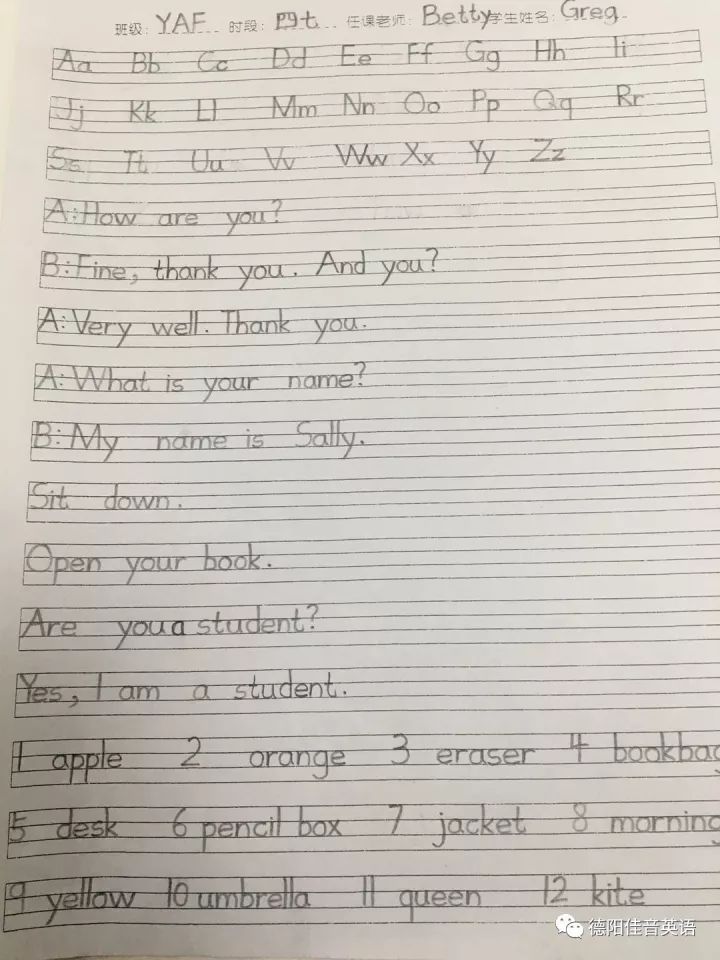 班级: YAF 时段: 四七 任课老师: Betty 学生姓名: Greg
Aa Bb Cc Dd Ee Ff Gg Hh Ii
Jj Kk Ll Mm Nn Oo Pp Qq Rr
Ss Tt Uu Vv Ww Xx Yy Zz
A: How are you?
B: Fine, thank you. And you?
A: Very well. Thank you.
A: What is your name?
B: My name is Sally.
Sit down.
Open your book.
Are you a student?
Yes, I am a student.
1 apple 2 orange 3 eraser 4 bookbag
5 desk 6 pencil box 7 jacket 8 morning
9 yellow 10 umbrella 11 queen 12 kite
德阳佳音英语